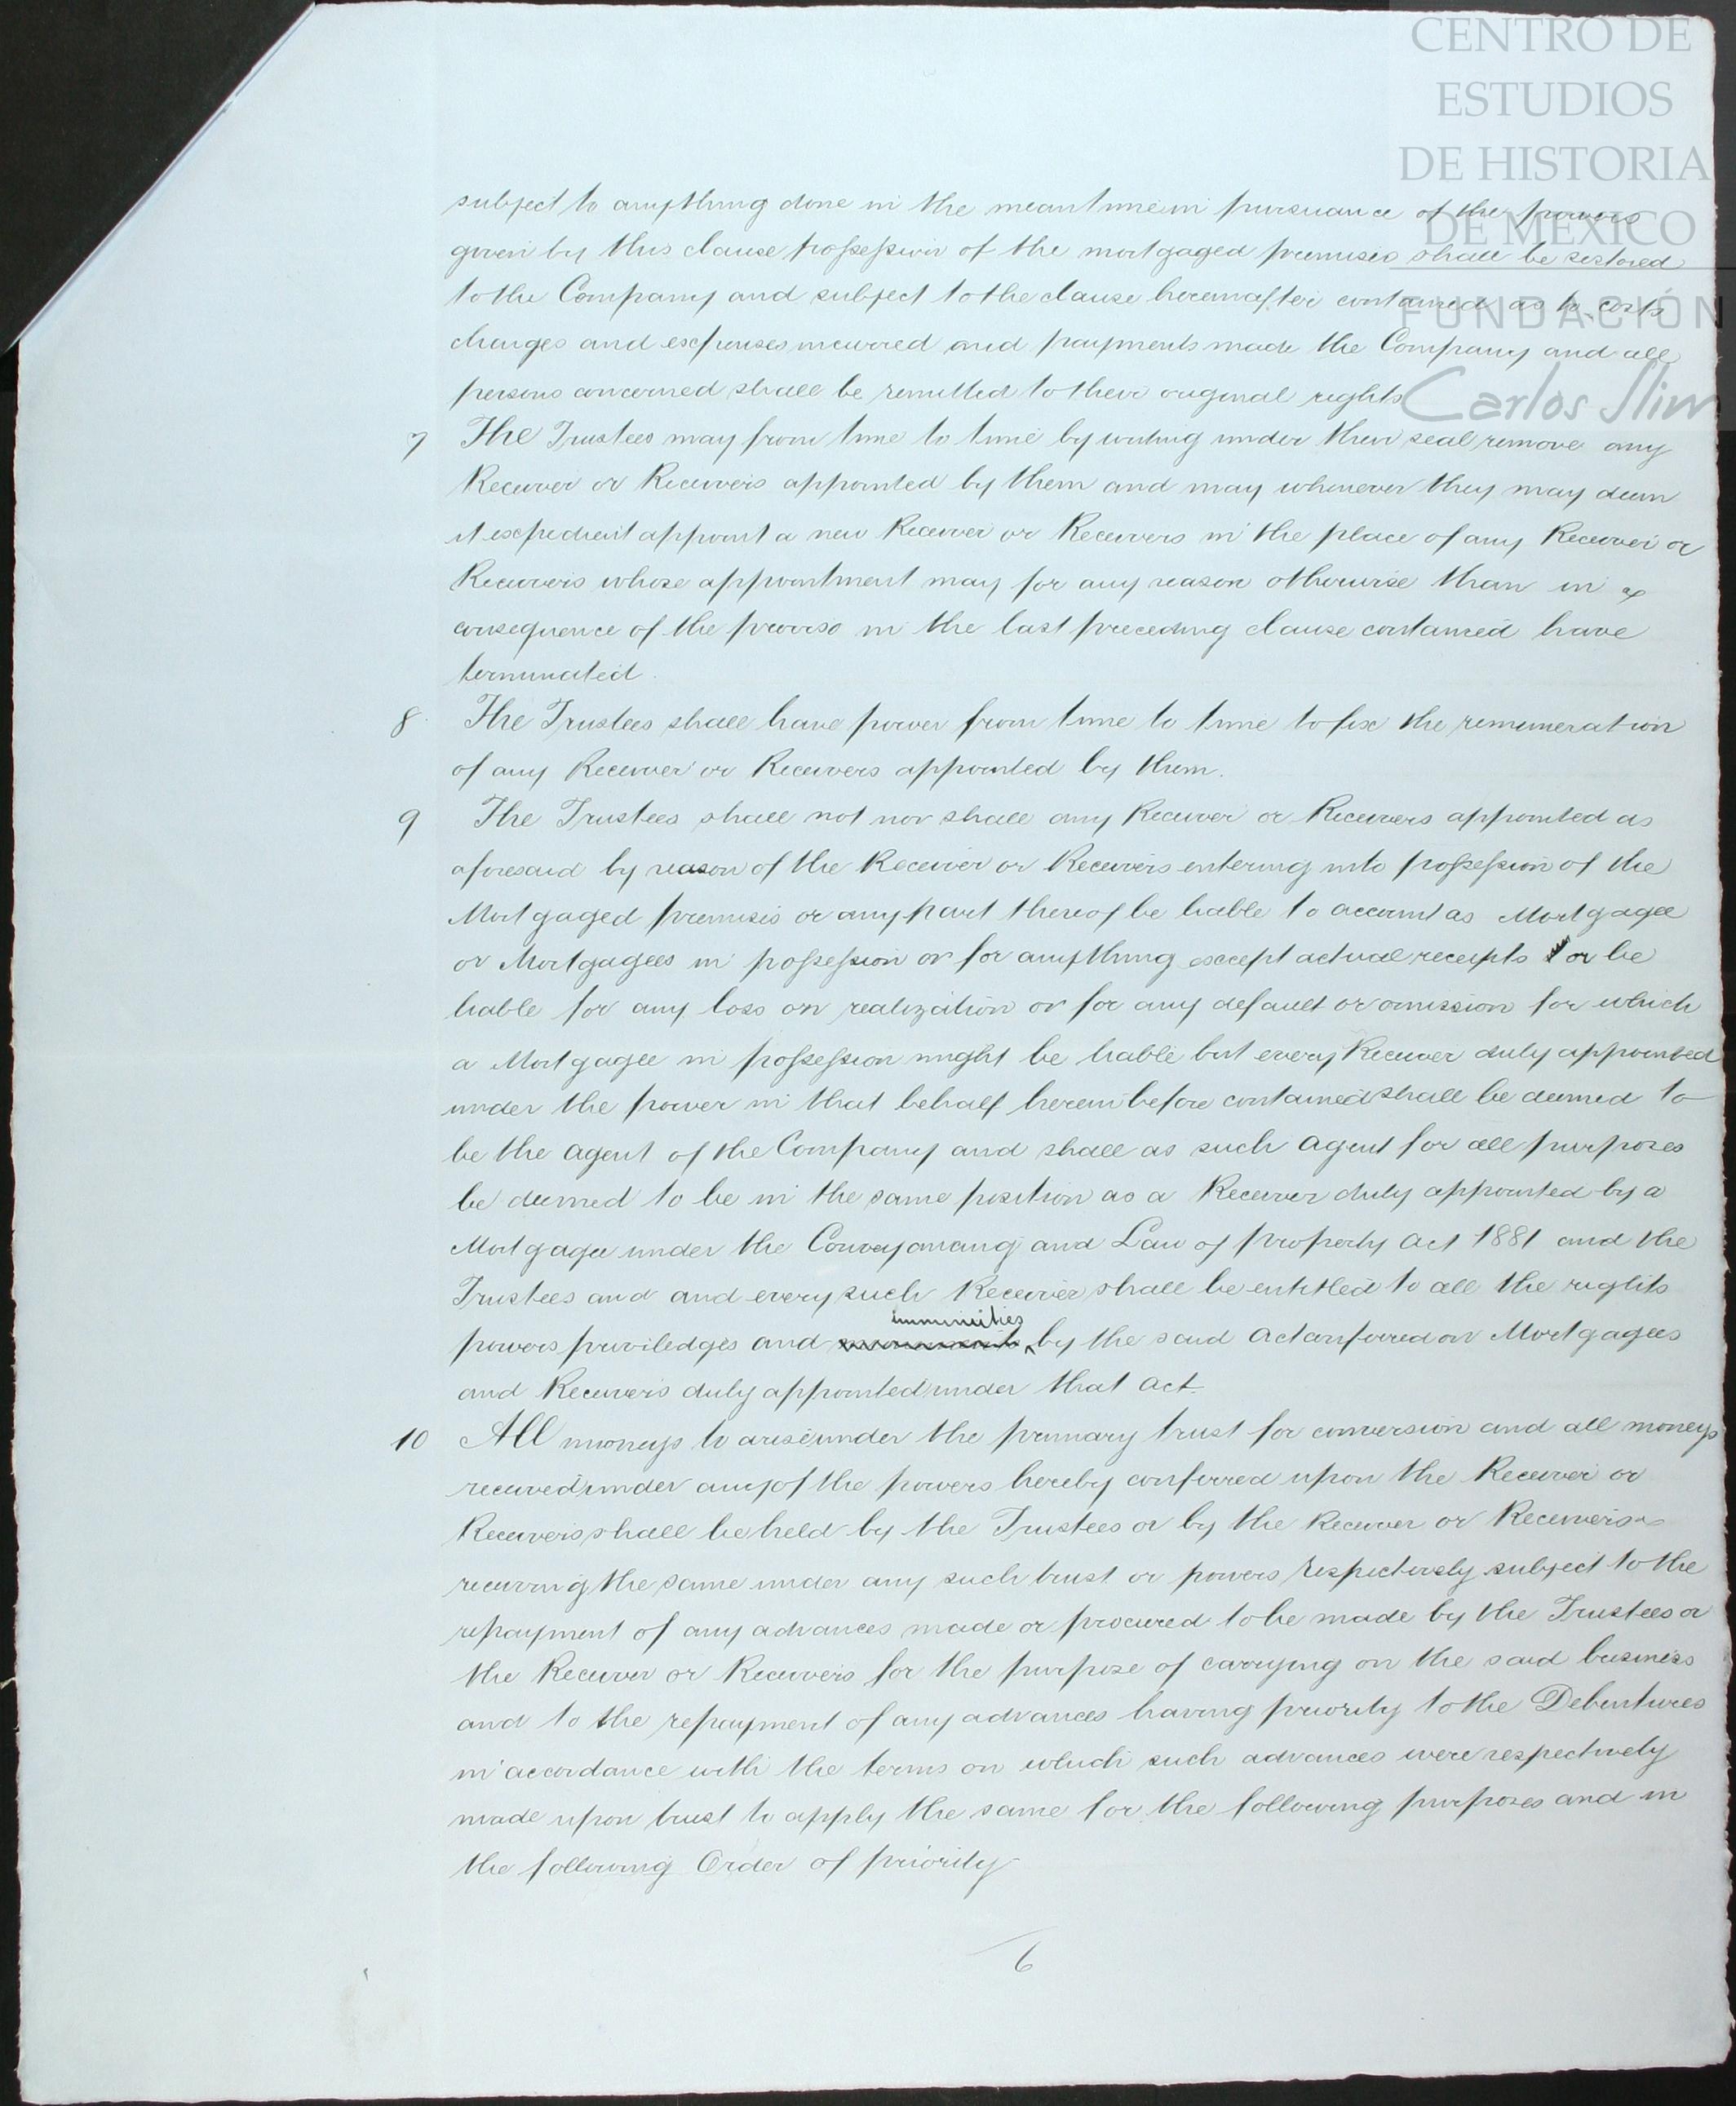 CENTRO DE
ESTUDIOS
DE HISTORIA
DE MEXICO
FUNDACIÓN
Carlos Slim
subject to anything done in the meantime in pursuance of the powers
given by this clause possession of the mortgaged premises shall be restored
to the Company and subject to the clause hereinafter contained as to costs
charges and expenses incurred and payments made the Company and all
persons concerned shall be remitted to their original rights
7 The Trustees may from time to time by writing under their seal remove any
Receiver or Receivers appointed by them and may whenever they may deem
it expedient appoint a new Receiver or Receivers in the place of any Receiver or
Receivers whose appointment may for any reason otherwise than in
consequence of the proviso in the last preceding clause contained have
terminated.
8 The Trustees shall have power from time to time to fix the remuneration
of any Receiver or Receivers appointed by them.
9 The Trustees shall not nor shall any Receiver or Receivers appointed as
aforesaid by reason of the Receiver or Receivers entering into possession of the
Mortgaged premises or any part thereof be liable to account as Mortgagee
or Mortgagees in possession or for anything except actual receipts or be
liable for any loss on realization or for any default or omission for which
a Mortgagee in possession might be liable but every Receiver duly appointed
under the power in that behalf hereinbefore contained shall be deemed to
be the agent of the Company and shall as such agent for all purposes
be deemed to be in the same position as a Receiver duly appointed by a
Mortgagee under the Conveyancing and Law of property Act 1881 and the
Trustees and and every such Receiver shall be entitled to all the rights
powers priviledges and immunities by the said Act conferred on Mortgagees
and Receivers duly appointed under that Act.
10 All moneys to arise under the primary trust for conversion and all moneys
received under any of the powers hereby conferred upon the Receiver or
Receivers shall be held by the Trustees or by the Receiver or Receivers
receiving the same under any such trust or powers respectively subject to the
repayment of any advances made or procured to be made by the Trustees or
the Receiver or Receivers for the purpose of carrying on the said business
and to the repayment of any advances having priority to the Debentures
in accordance with the terms on which such advances were respectively
made upon trust to apply the same for the following purposes and in
the following Order of priority
6